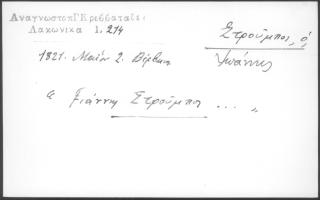 Αναγνωστοπ Γκριτσοπουλ:
Λακωνικα 1,214
Στρούμπος, ὁ,
Ἰωάννης
1821. Μαΐου 2. Βέρβαινα
"Γιάννη Στρούμπος ... "